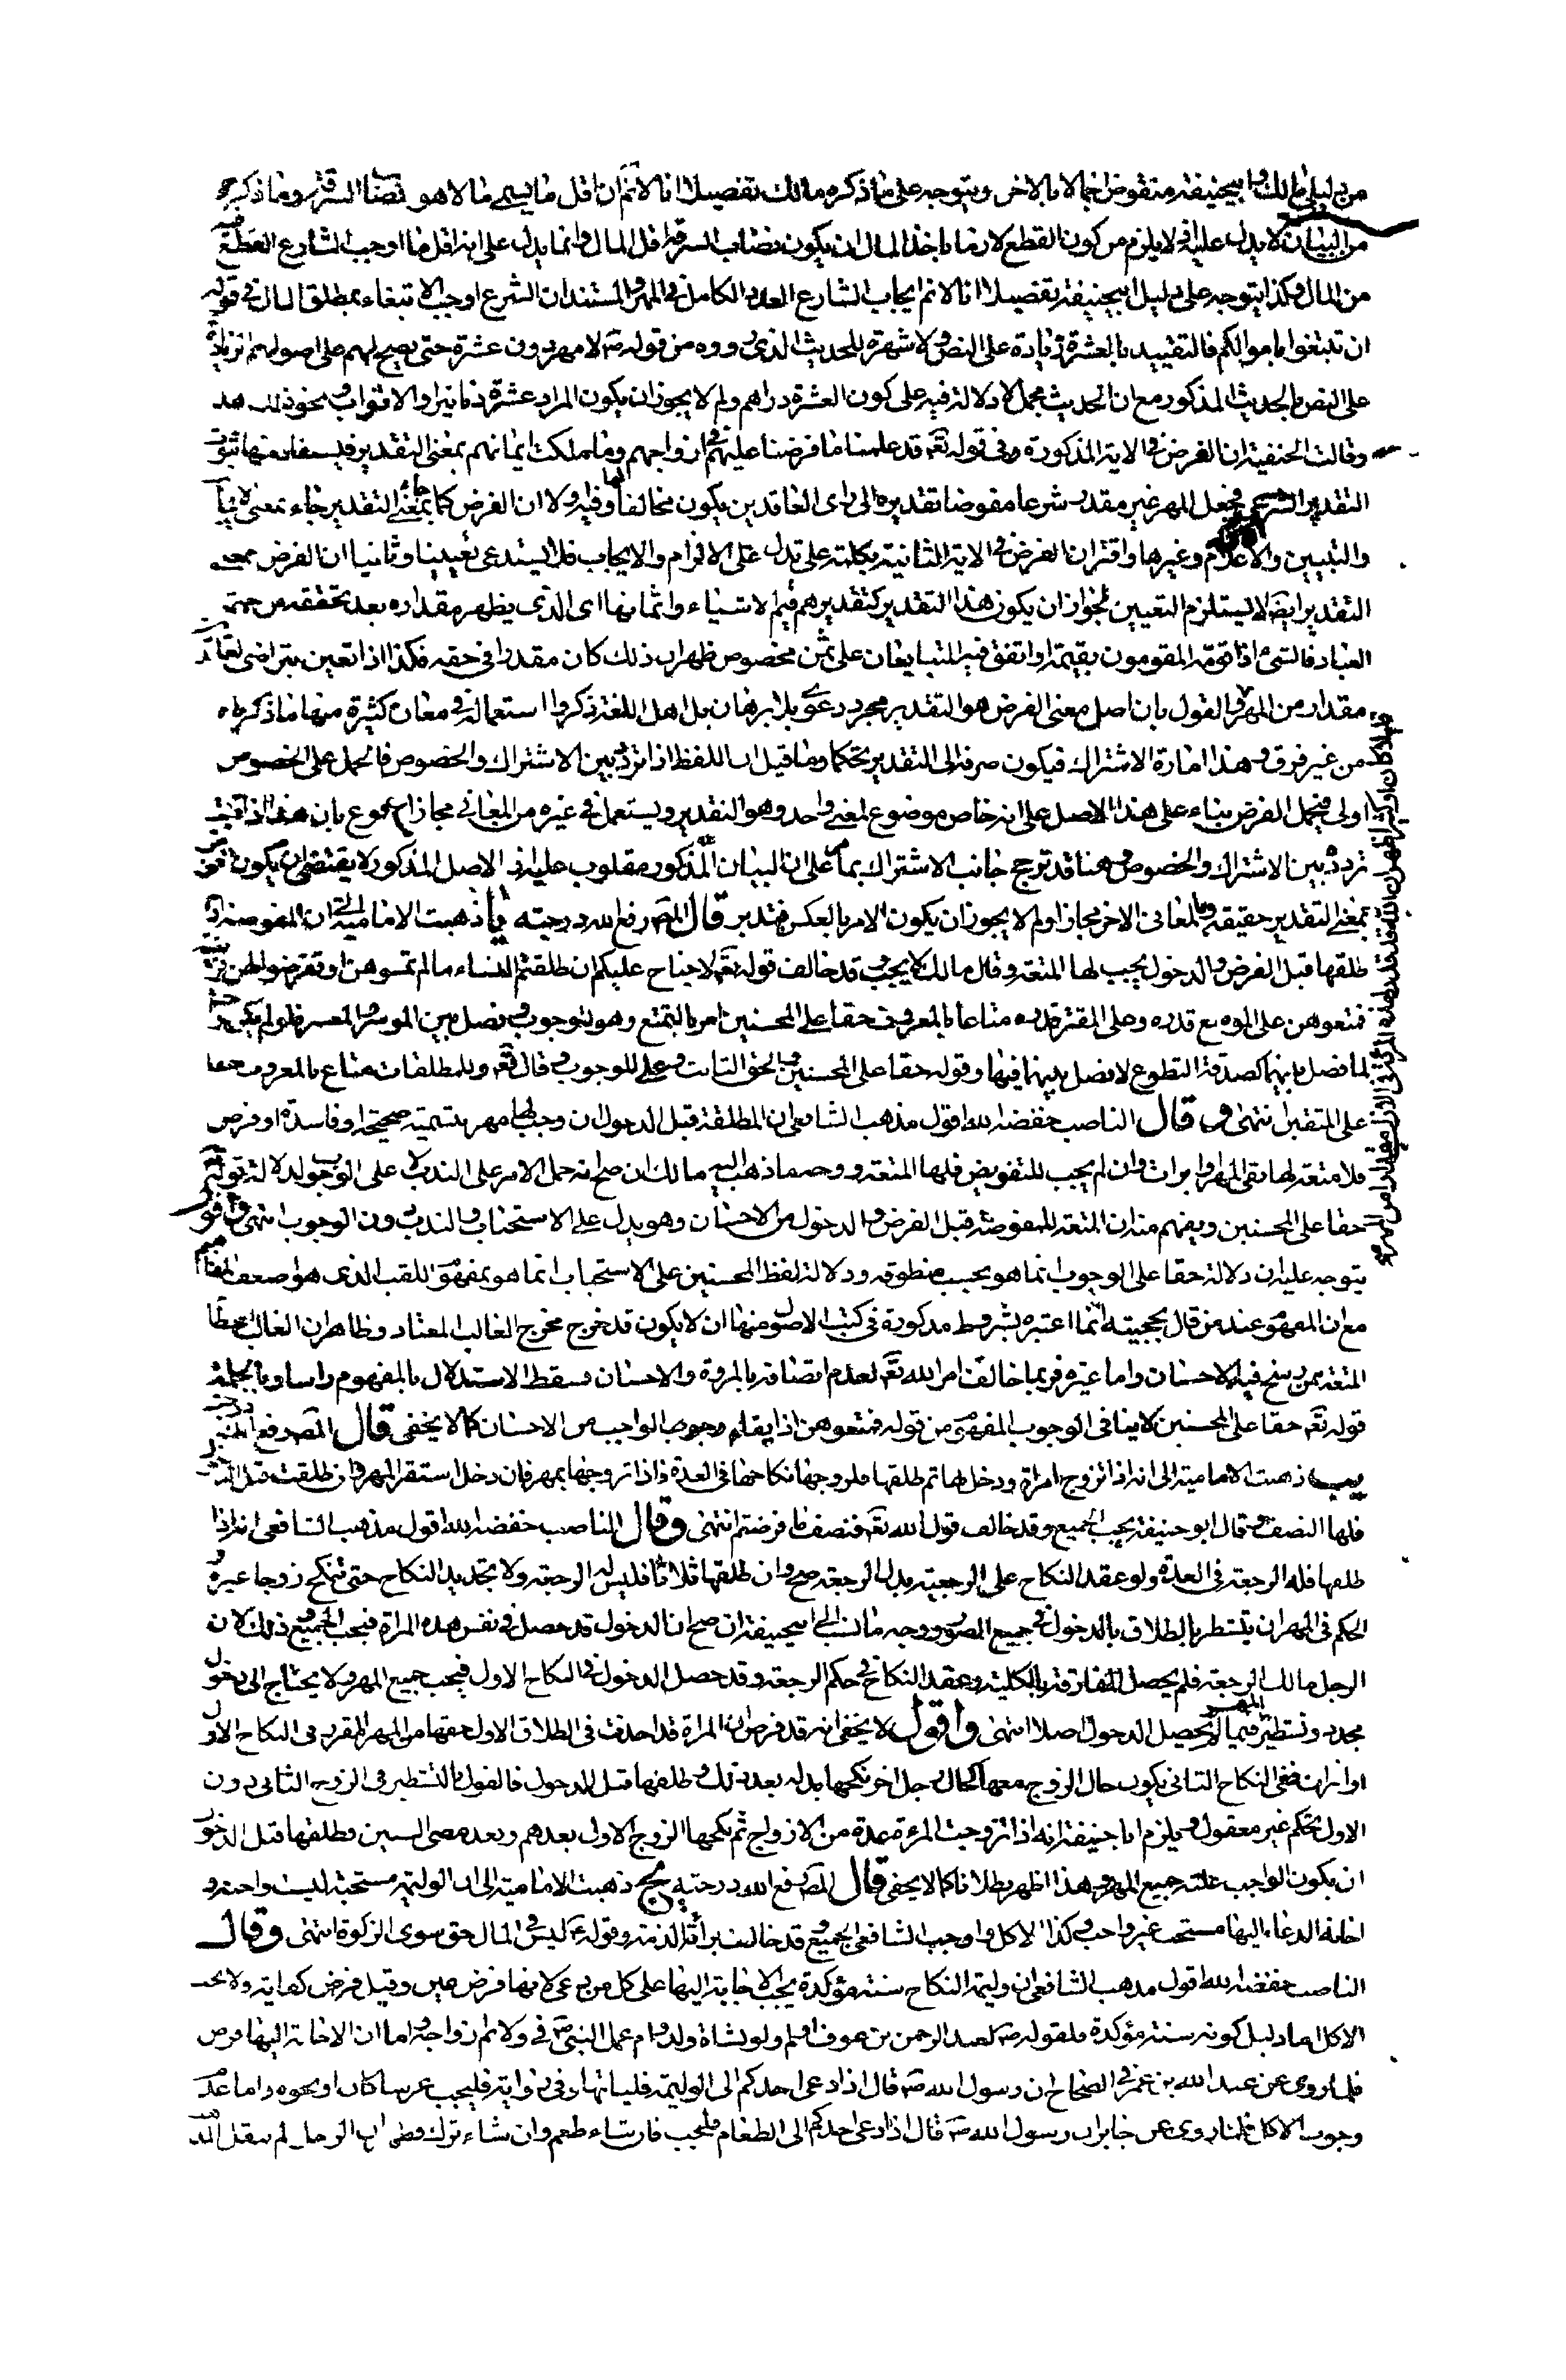 من دليلي مالك وابيحنيفة منقوض اجمالا بالاخر ويتوجه على ما ذكره مالك تفصيلا انا لا نم ان اقل ما يسمى مالا هو نصاب السرقة وما ذكره
من البيان لا يدل عليه اذ لا يلزم من كون القطع لازما باخذ المال ان يكون نصاب السرقة اقل المال وانما يدل على انه اقل ما اوجب الشارع القطع فيه
من المال وكذا يتوجه على دليل ابيحنيفة تفصيلا انا لا نم ايجاب الشارع العدد الكامل في المهر والمستند ان الشرع اوجب الابتغاء بمطلق المال في قوله
ان تبتغوا باموالكم فالتقييد بالعشرة زيادة على النص ولا شهرة للحديث الذي رووه من قوله ص لا مهر دون عشرة حتى يصح لهم على اصولهم الزيادة
على النص بالحديث المذكور مع ان الحديث مجمل لا دلالة فيه على كون العشرة دراهم ولم لا يجوز ان يكون المراد عشرة دنانير او الاثواب ونحو ذلك هذا
وقالت الحنفية ان الفرض في الاية المذكورة وفي قوله تع قد علمنا ما فرضنا عليهم في ازواجهم وما ملكت ايمانهم بمعنى التقدير فيستفاد منها ثبوت
التقدير الشرعي فجعل المهر غير مقدر شرعا مفوضا تقديره الى راى العاقدين يكون مخالفا لها وفيه اولا ان الفرض كما جاء بمعنى التقدير جاء بمعنى الايجاب
والتبيين والاعلام وغيرها واقتران الفرض في الاية الثانية بكلمة على تدل على الالزام والايجاب فلا يستدعي تعيينا وثانيا ان الفرض بمعنى
التقدير ايض لا يستلزم التعيين لجواز ان يكون هذا التقدير كتقديرهم قيم الاشياء واثمانها اى الذي يظهر مقداره بعد تحققه من جهة
العباد فالشيء اذا قومه المقومون بقيمة او اتفق فيه المتبايعان على ثمن مخصوص ظهر ان ذلك كان مقدرا في حقه فكذا اذا تعين بتراضي العاقدين
مقدار من المهر والقول بان اصل معنى الفرض هو التقدير مجرد دعوى بلا برهان بل اهل اللغة ذكروا استعماله في معان كثيرة منها ما ذكرناه
من غير فرق وهذا امارة الاشتراك فيكون صرفه الى التقدير تحكما وما قيل ان اللفظ اذا تردد بين الاشتراك والخصوص فالحمل على الخصوص
اولى فيحمل الفرض بناء على هذا الاصل على انه خاص موضوع لمعنى واحد وهو التقدير ويستعمل في غيره من المعاني مجازا ممنوع بان هذا اذا بقي
تردد بين الاشتراك والخصوص وهنا قد ترجح جانب الاشتراك بما مر على ان البيان المذكور مقلوب عليه اذ الاصل المذكور لا يقتضي ان يكون الفرض
بمعنى التقدير حقيقة وبالمعاني الاخر مجازا ولم لا يجوز ان يكون الامر بالعكس فتدبر قال المص رفع الله درجته يا ذهبت الامامية الى ان المفوضة اذا
طلقها قبل الفرض والدخول يجب لها المتعة وقال مالك لا يجب وقد خالف قوله تع لا جناح عليكم ان طلقتم النساء ما لم تمسوهن او تفرضوا لهن فريضة
فمتعوهن على الموسع قدره وعلى المقتر قدره متاعا بالمعروف حقا على المحسنين امر بالتمتع وهو للوجوب وفصل بين الموسر والمعسر فلو لم يكن واجبا
لما فصل بينهما كصدقة التطوع لا فصل بينهما فيها وقوله حقا على المحسنين والحق الثابت وعلى للوجوب وقال تع وللمطلقات متاع بالمعروف حقا
على المتقين انتهى وقال الناصب خفضه الله اقول مذهب الشافعي ان المطلقة قبل الدخول ان وجب لها مهر بتسمية صحيحة او فاسدة او فرض
فلا متعة لها بقي المهر او ابرات وان لم يجب للتفويض فلها المتعة ووجه ما ذهب اليه مالك ان صح انه حمل الامر على الندب لا على الوجوب لدلالة قوله تع
حقا على المحسنين ويفهم منه ان المتعة للمفوضة قبل الفرض والدخول من الاحسان وهو يدل على الاستحباب والندب دون الوجوب انتهى واقول
يتوجه عليه ان دلالة حقا على الوجوب انما هو بحسب منطوقه ودلالة لفظ المحسنين على الاستحباب انما هو بمفهوم اللقب الذي هو اضعف المفاهيم
مع ان المفهوم عند من قال بحجيته انما اعتبره بشروط مذكورة في كتب الاصول ومنها ان لا يكون قد خرج مخرج الغالب المعتاد وظاهر ان الغالب اعطاء
المتعة ممن رسخ فيه الاحسان واما غيره فربما خالف امر الله تع لعدم اتصافه بالمروة والاحسان فسقط الاستدلال بالمفهوم راسا وبالجملة
قوله تع حقا على المحسنين لا ينافي الوجوب المفهوم من قوله فمتعوهن اذ ايقاع وجوب الواجب من الاحسان كما لا يخفى قال المص رفع الله درجته
يب ذهبت الامامية الى انه اذا تزوج امراة ودخل بها ثم طلقها فله زوجها نكاحها في العدة فاذا تزوجها بمهر فان دخل استقر المهر وان طلقت قبل الدخول
فلها النصف وقال ابو حنيفة يجب الجميع وقد خالف قول الله تع فنصف ما فرضتم انتهى وقال الناصب خفضه الله اقول مذهب الشافعي انه اذا
طلقها فله الرجعة في العدة ولو عقد النكاح على الرجعية بدل الرجعة صح وان طلقها ثلاثا فليس له الرجعة ولا تجديد النكاح حتى تنكح زوجا غيره و
الحكم في المهر ان يتشطر بالطلاق بالدخول في جميع الصور ووجه ما نسب الى ابيحنيفة ان صح ان الدخول قد حصل في نفس هذه المراة فيجب الجميع وذلك لان
الرجل مالك الرجعة فلم يحصل المفارقة بالكلية وعقد النكاح في حكم الرجعة وقد حصل الدخول في النكاح الاول فيجب جميع المهر ولا يحتاج الى دخول
مجدد وتشطير المهر فيما لم يحصل الدخول اصلا انتهى واقول لا يخفى انه قد فرض ان المراة قد اخذت في الطلاق الاول حقها من المهر المقرر في النكاح الاول
او ابراته ففي النكاح الثاني يكون حال الزوج معها كحال رجل اخر نكحها بدله بعد ذلك وطلقها قبل الدخول فالقول بالتشطير في الزوج الثاني دون
الاول تحكم غير معقول ويلزم ابا حنيفة انه اذا تزوجت المرءة عدة من الازواج ثم نكحها الزوج الاول بعدهم وبعد مضي السنين وطلقها قبل الدخول
ان يكون الواجب عليه جميع المهر وهذا اظهر بطلانا كما لا يخفى قال المص رفع الله درجته يج ذهبت الامامية الى ان الوليمة مستحبة ليست واجبة و
اجابة الدعاء اليها مستحب غير واجب وكذا الاكل واوجب الشافعي الجميع وقد خالف براءة الذمة وقوله ع ليس في المال حق سوى الزكوة انتهى وقال
الناصب خفضه الله اقول مذهب الشافعي ان وليمة النكاح سنة مؤكدة يجب الاجابة اليها على كل من دعي لانها فرض عين وقيل فرض كفاية ولا يجب
الاكل اما دليل كونه سنة مؤكدة فلقوله ص لعبد الرحمن بن عوف اولم ولو بشاة ولدوام عمل النبي ص في ولائم ازواجه واما ان الاجابة اليها فرض
فلما روى عن عبد الله بن عمر في الصحاح ان رسول الله ص قال اذا دعي احدكم الى الوليمة فلياتها وفي رواية فليجب عرسا كان او نحوه واما عدم
وجوب الاكل فلما روى عن جابر ان رسول الله ص قال اذا دعي احدكم الى الطعام فليجب فان شاء طعم وان شاء ترك